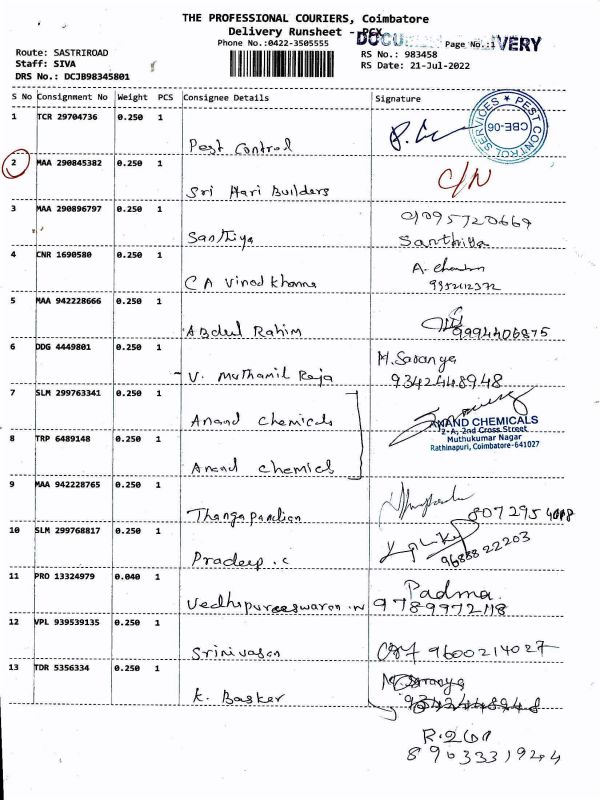 THE PROFESSIONAL COURIERS, Coimbatore
Delivery Runsheet - PEX
Phone No.:0422-3505555
Page No.:1
Route: SASTRIROAD
RS No.: 983458
Staff: SIVA
RS Date: 21-Jul-2022
DRS No.: DCJB98345801
S No Consignment No Weight PCS Consignee Details Signature
1 TCR 29704736 0.250 1
Pest Control
PEST CONTROL SERVICES
CBE-06
2 MAA 290845382 0.250 1
Sri Hari Builders C/N
3 MAA 290896797 0.250 1
Santhiya Santhiya
4 CNR 1690580 0.250 1
CA Vinod Khanna
9952112372
5 MAA 942228666 0.250 1
Abdul Rahim 9994406875
6 DDG 4449801 0.250 1 M.Saranya
V. Muthamil Raja 9342448948
7 SLM 299763341 0.250 1
Anand Chemicals
ANAND CHEMICALS
2-A, 2nd Cross Street
Muthukumar Nagar
Rathinapuri, Coimbatore-641027
8 TRP 6489148 0.250 1
Anand Chemicals
9 MAA 942228765 0.250 1
Thangapandian
10 SLM 299768817 0.250 1
Pradeep.c 9688822203
11 PRO 13324979 0.040 1 Padma
9789972118
12 VPL 939539135 0.250 1
Srinivasan 9600214027
13 TDR 5356334 0.250 1
K. Basker